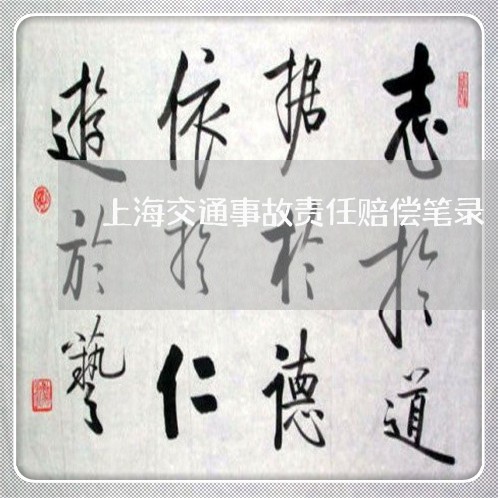 志於道
据於德
依於仁
遊於藝
上海交通事故责任赔偿笔录